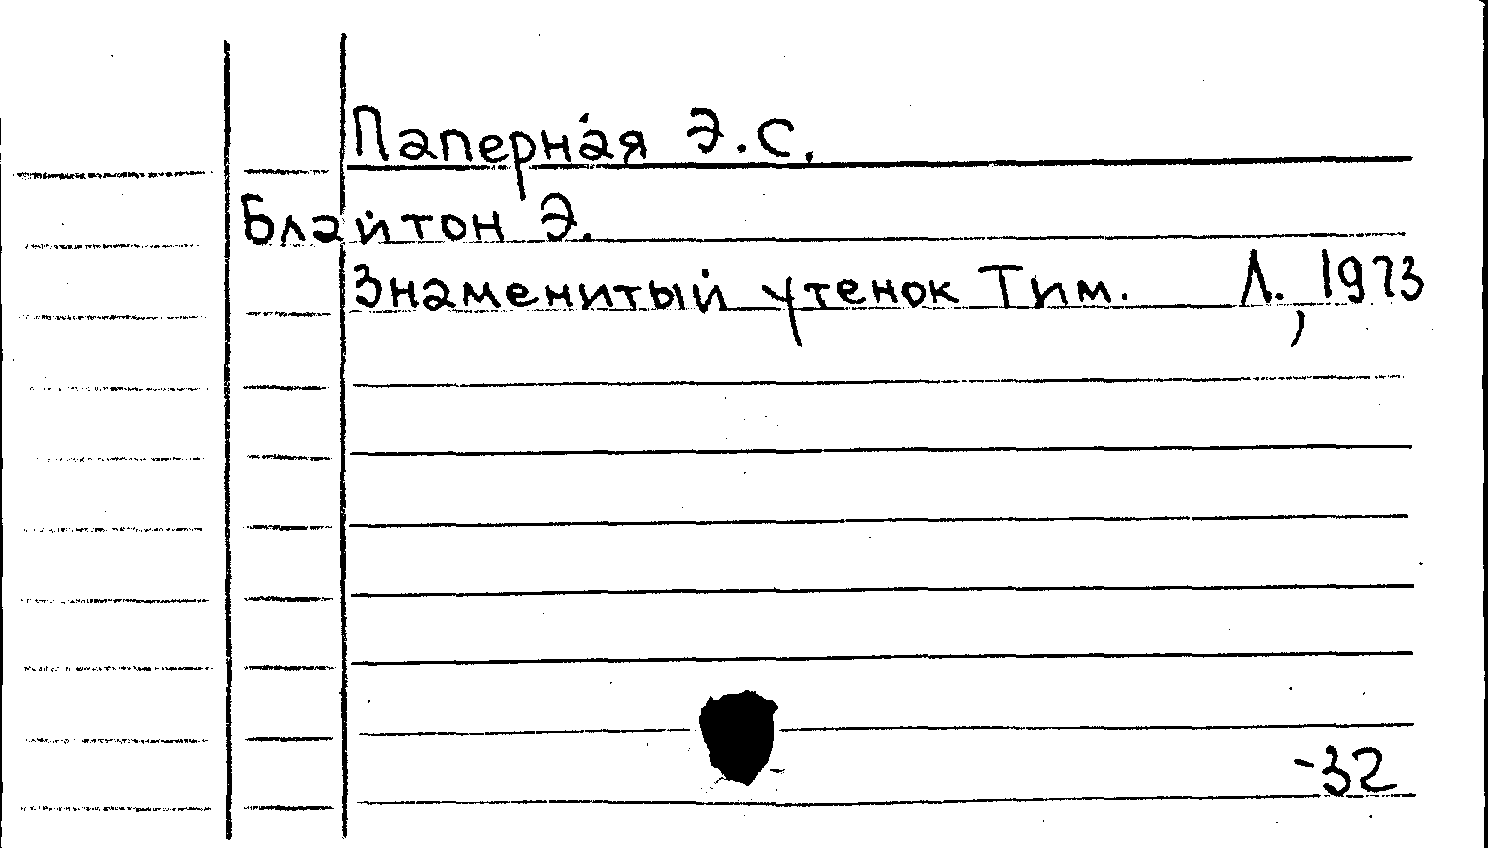 Паперная Э.С.
Блайтон Э.
Знаменитый утенок Тим. Л., 1973
-32